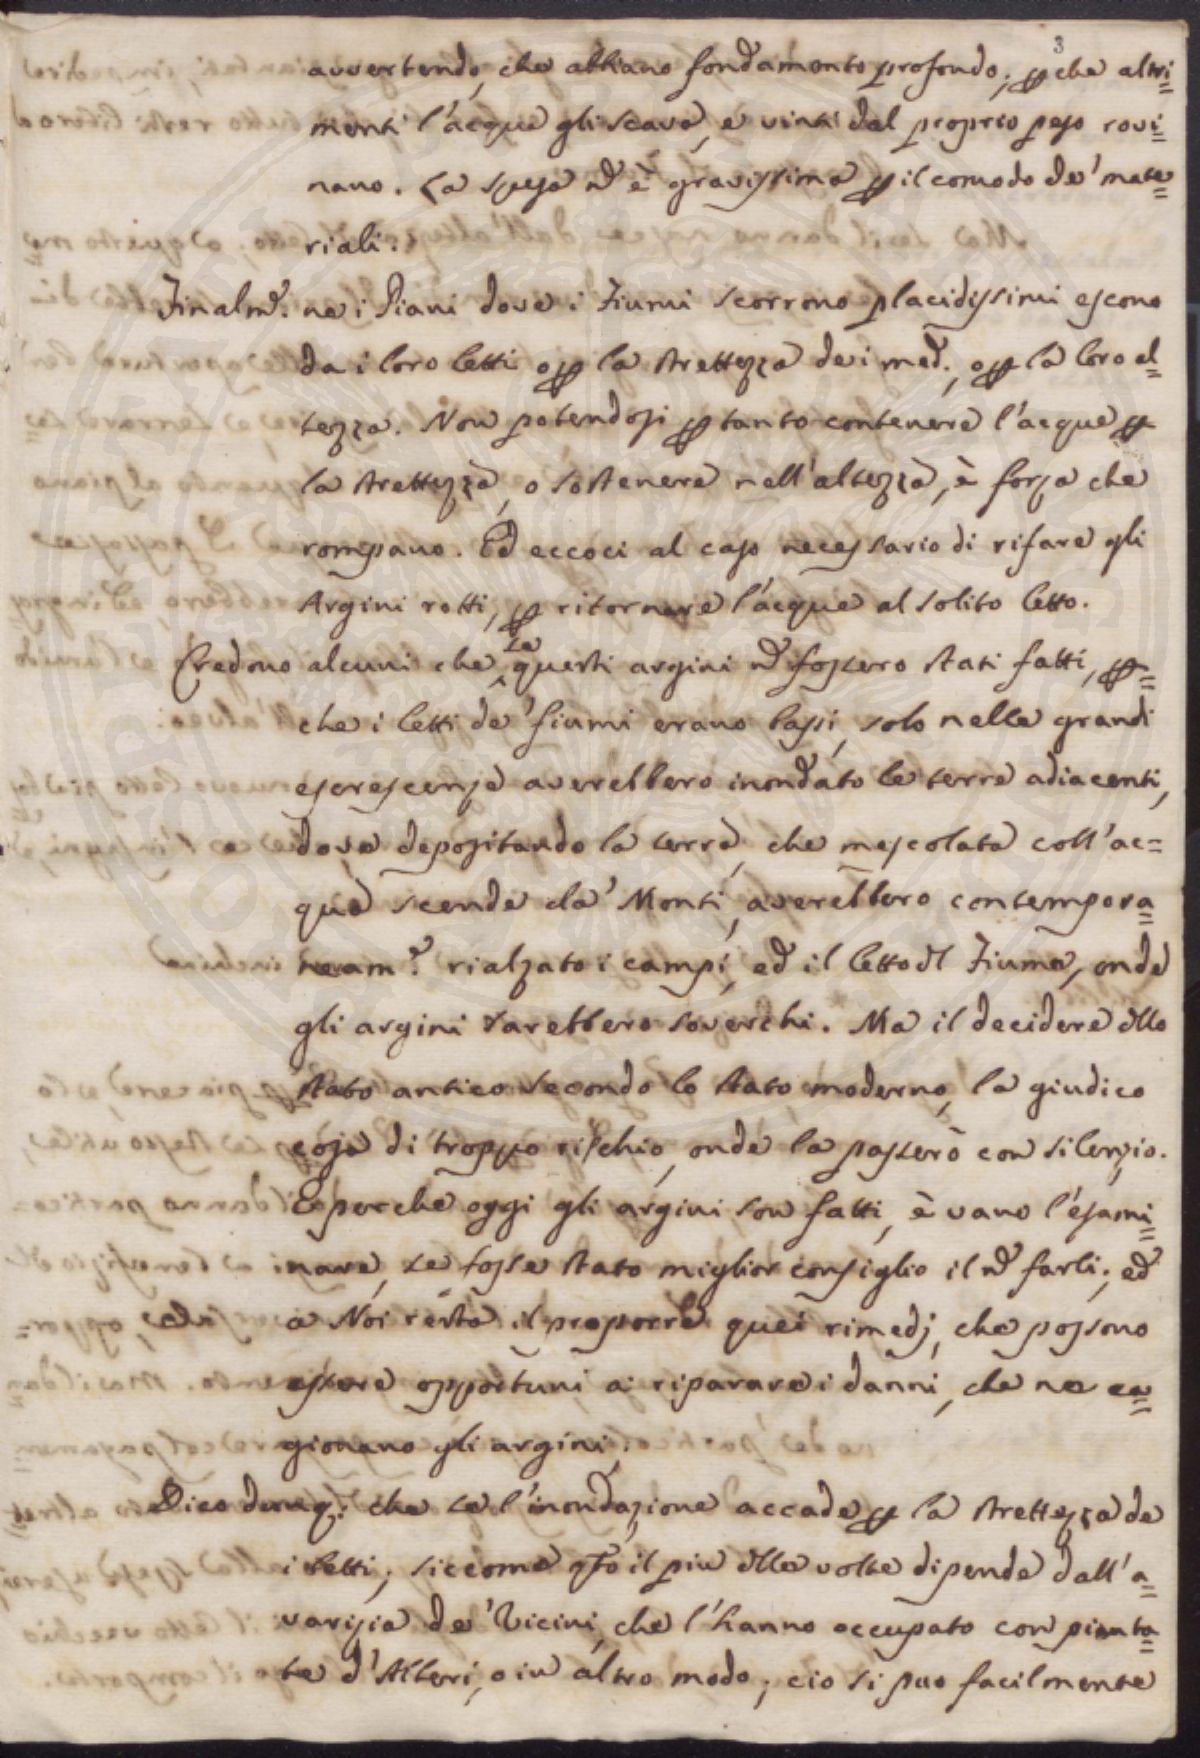 3
avvertendo, che abbiano fondam̃ento profondo; p che altri=
menti l'acque gli scava, e vinti dal proprio peso rovi=
nano. La spesa nõ è gravissima p il comodo de' mate=
riali.
Finalm̃. ne i Piani dove i Fiumi scorrono placidissimi escono
da i loro letti o p la strettezza de i med., o p la loro al=
tezza. Non potendosi p tanto contenere l'acque p
la strettezza, o sostenere nell'altezza, è forza che
rompano. Ed eccoci al caso necessario di rifare gli
Argini rotti, p ritornare l'acque al solito letto.
Credono alcuni che se questi argini nõ fossero stati fatti, p=
che i letti de' fiumi erano bassi, solo nelle grandi
escrescenze averebbero inondato le terre adiacenti,
dove depositando la terra, che mescolata coll'ac=
qua scende da' Monti, averebbero contempora=
neam.e rialzato i campi, ed il letto dl Fiume, onde
gli argini sarebbero soverchi. Ma il decidere dllo
stato antico secondo lo stato moderno, la giudico
cosa di troppo rischio, onde la passerò con silenzio.
E perche oggi gli argini son fatti, è vano l'esami=
nare, se fosse stato miglior consiglio il nõ farli; ed
a Noi resta il proporre quei rimedj, che possono
essere opportuni a riparare i danni, che ne ca=
gionano gli argini.
Dico dunq: che se l'inondazione accade p la strettezza de
i letti; siccome qsto il piu dlle volte dipende dall'a=
varizia de' Vicini, che l'hanno occupato con pianta=
te d'Alberi, o in altro modo; cio si puo facilmente